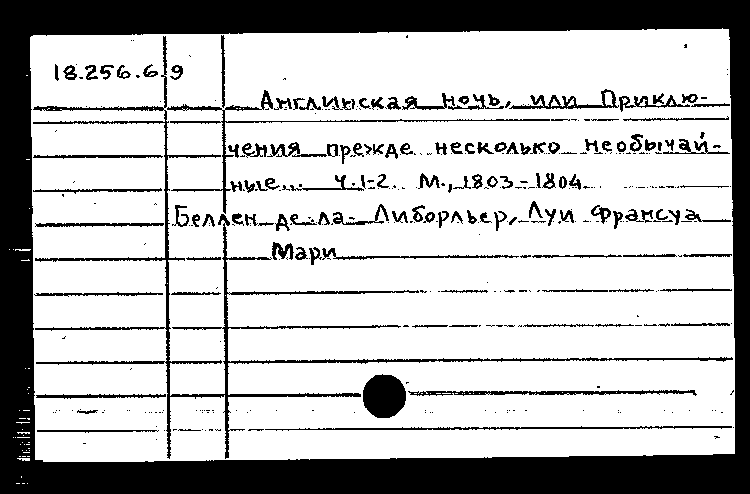 18.256.6.9
Английская ночь, или Приклю-
чения прежде несколько необычай-
ные... Ч.1-2. М., 1803-1804.
Беллен де-ла- Либорльер, Луи Франсуа
Мари